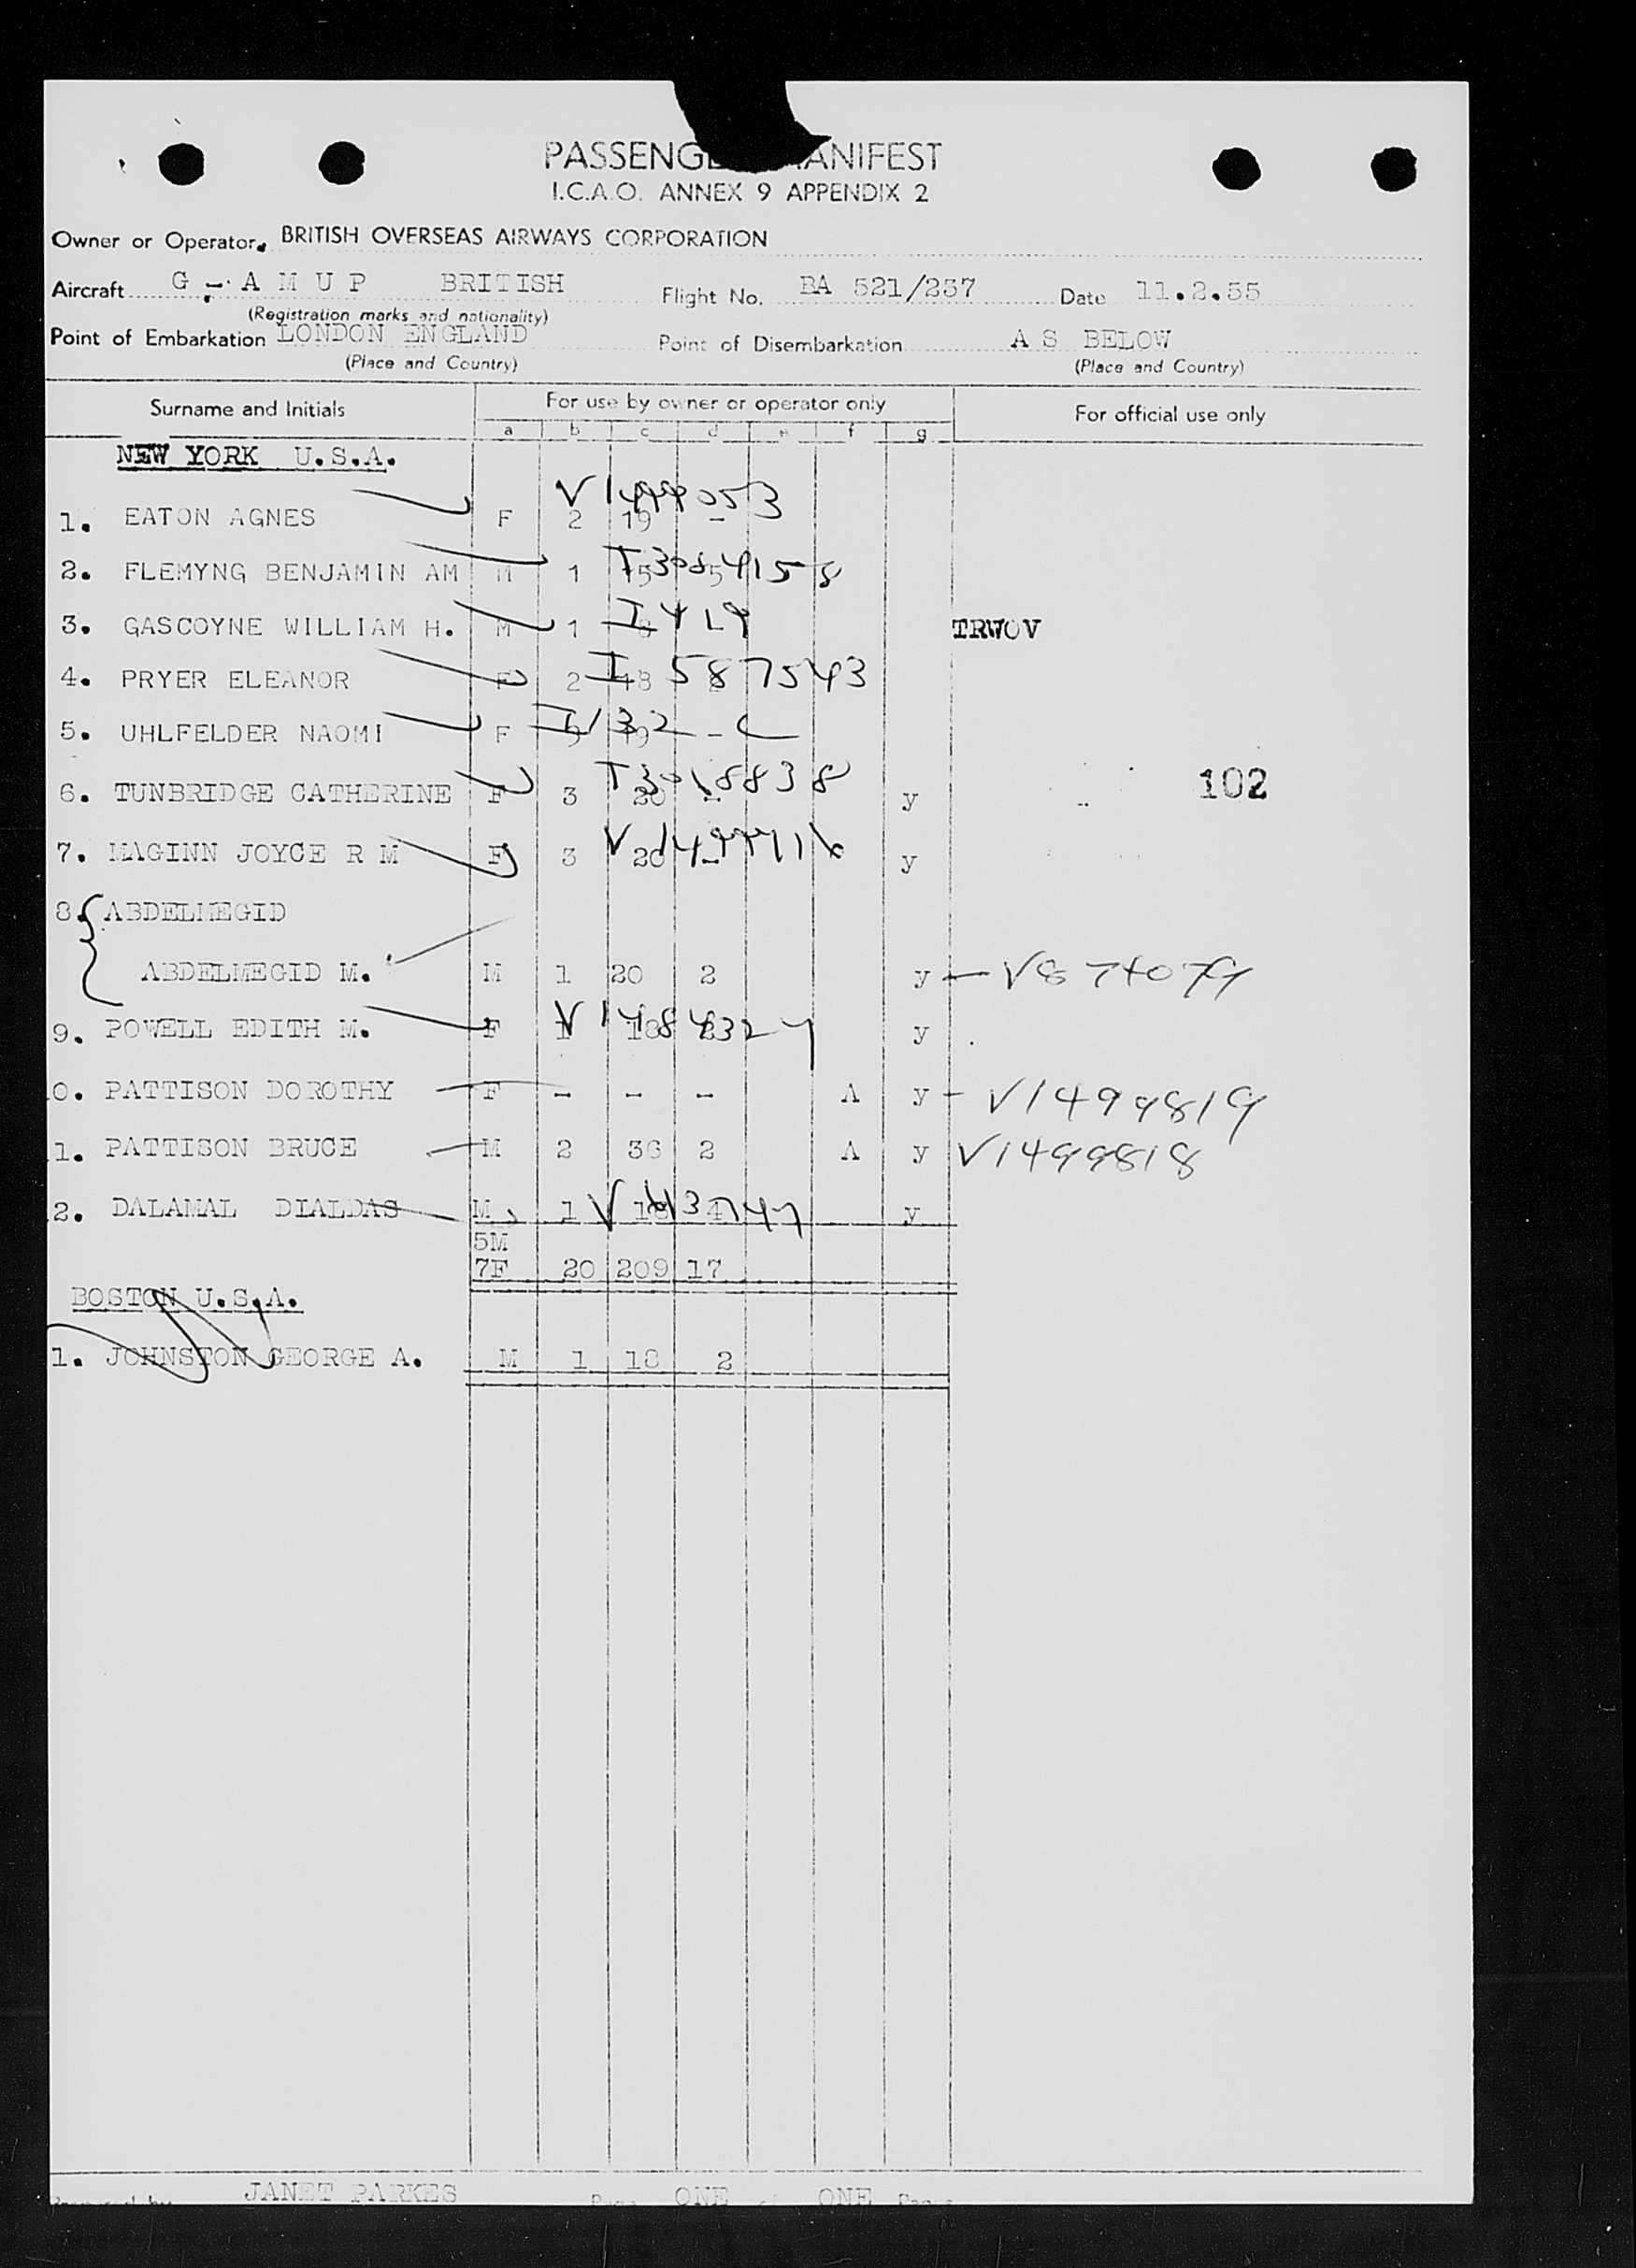 PASSENGE MANIFEST
I.C.A.O. ANNEX 9 APPENDIX 2
Owner or Operator. BRITISH OVERSEAS AIRWAYS CORPORATION
Aircraft G - A M U P BRITISH Flight No. BA 521/237 Date 11.2.55
(Registration marks and nationality)
Point of Embarkation LONDON ENGLAND Point of Disembarkation A S BELOW
(Place and Country) (Place and Country)
Surname and Initials For use by owner or operator only For official use only
a b c d e f g
NEW YORK U.S.A.
1. EATON AGNES F 2 19 -
2. FLEMYNG BENJAMIN AM M 1 T3084158
3. GASCOYNE WILLIAM H. M 1 TRWOV
4. PRYER ELEANOR F 2 18 I 587543
5. UHLFELDER NAOMI F 19 -
6. TUNBRIDGE CATHERINE F 3 20 - T3018838 y 102
7. MAGINN JOYCE R M F 3 20 - y
8. ABDELMEGID
ABDELMEGID M. M 1 20 2 y - V874079
9. POWELL EDITH M. F 18 y
0. PATTISON DOROTHY F - - - A y - V1499819
1. PATTISON BRUCE M 2 36 2 A y V1499818
2. DALAMAL DIALDAS M 1 18 4 y
5M
7F 20 209 17
BOSTON U.S.A.
1. JOHNSTON GEORGE A. M 1 18 2
JANET PARKES ONE ONE